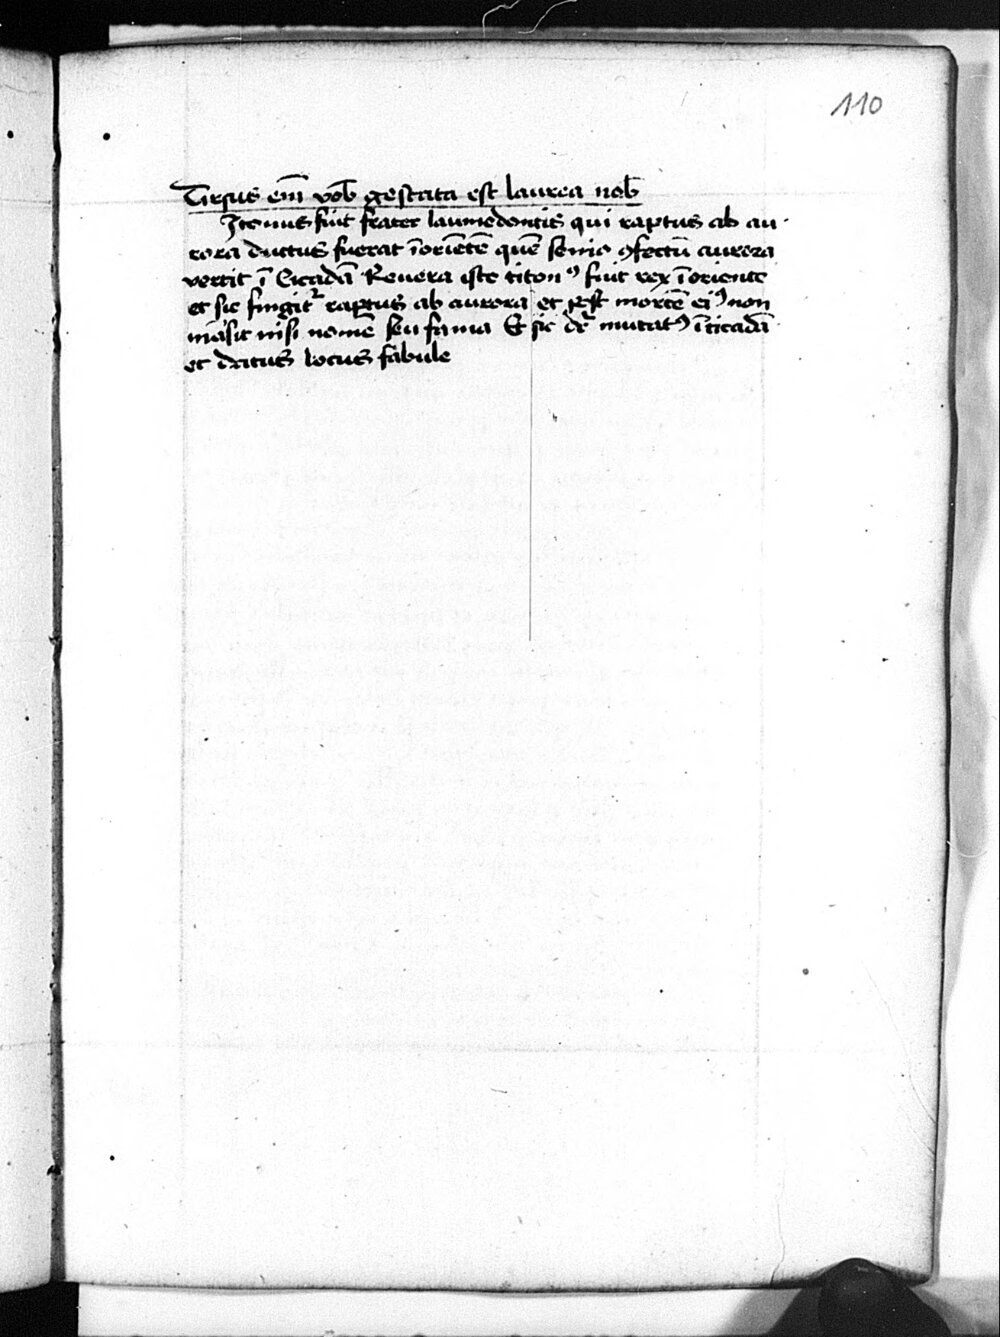 110
Tirsus em̄ vob̄ gestata est laurea nob̄
Itonus fuit frater laumedontis qui raptus ab au·
rora ductus fuerat ī oriētē quē senio ꝯfectū aurora
vertit ī Cicadā Revera iste titonꝰ fuit rex ī oriente
et sic fingit᷑ raptus ab aurora et post mortē eiꝰ non
māsit nisi nomē seu fama Et sic dr̄ mutatꝰ ī cicadā
et datus locus fabule